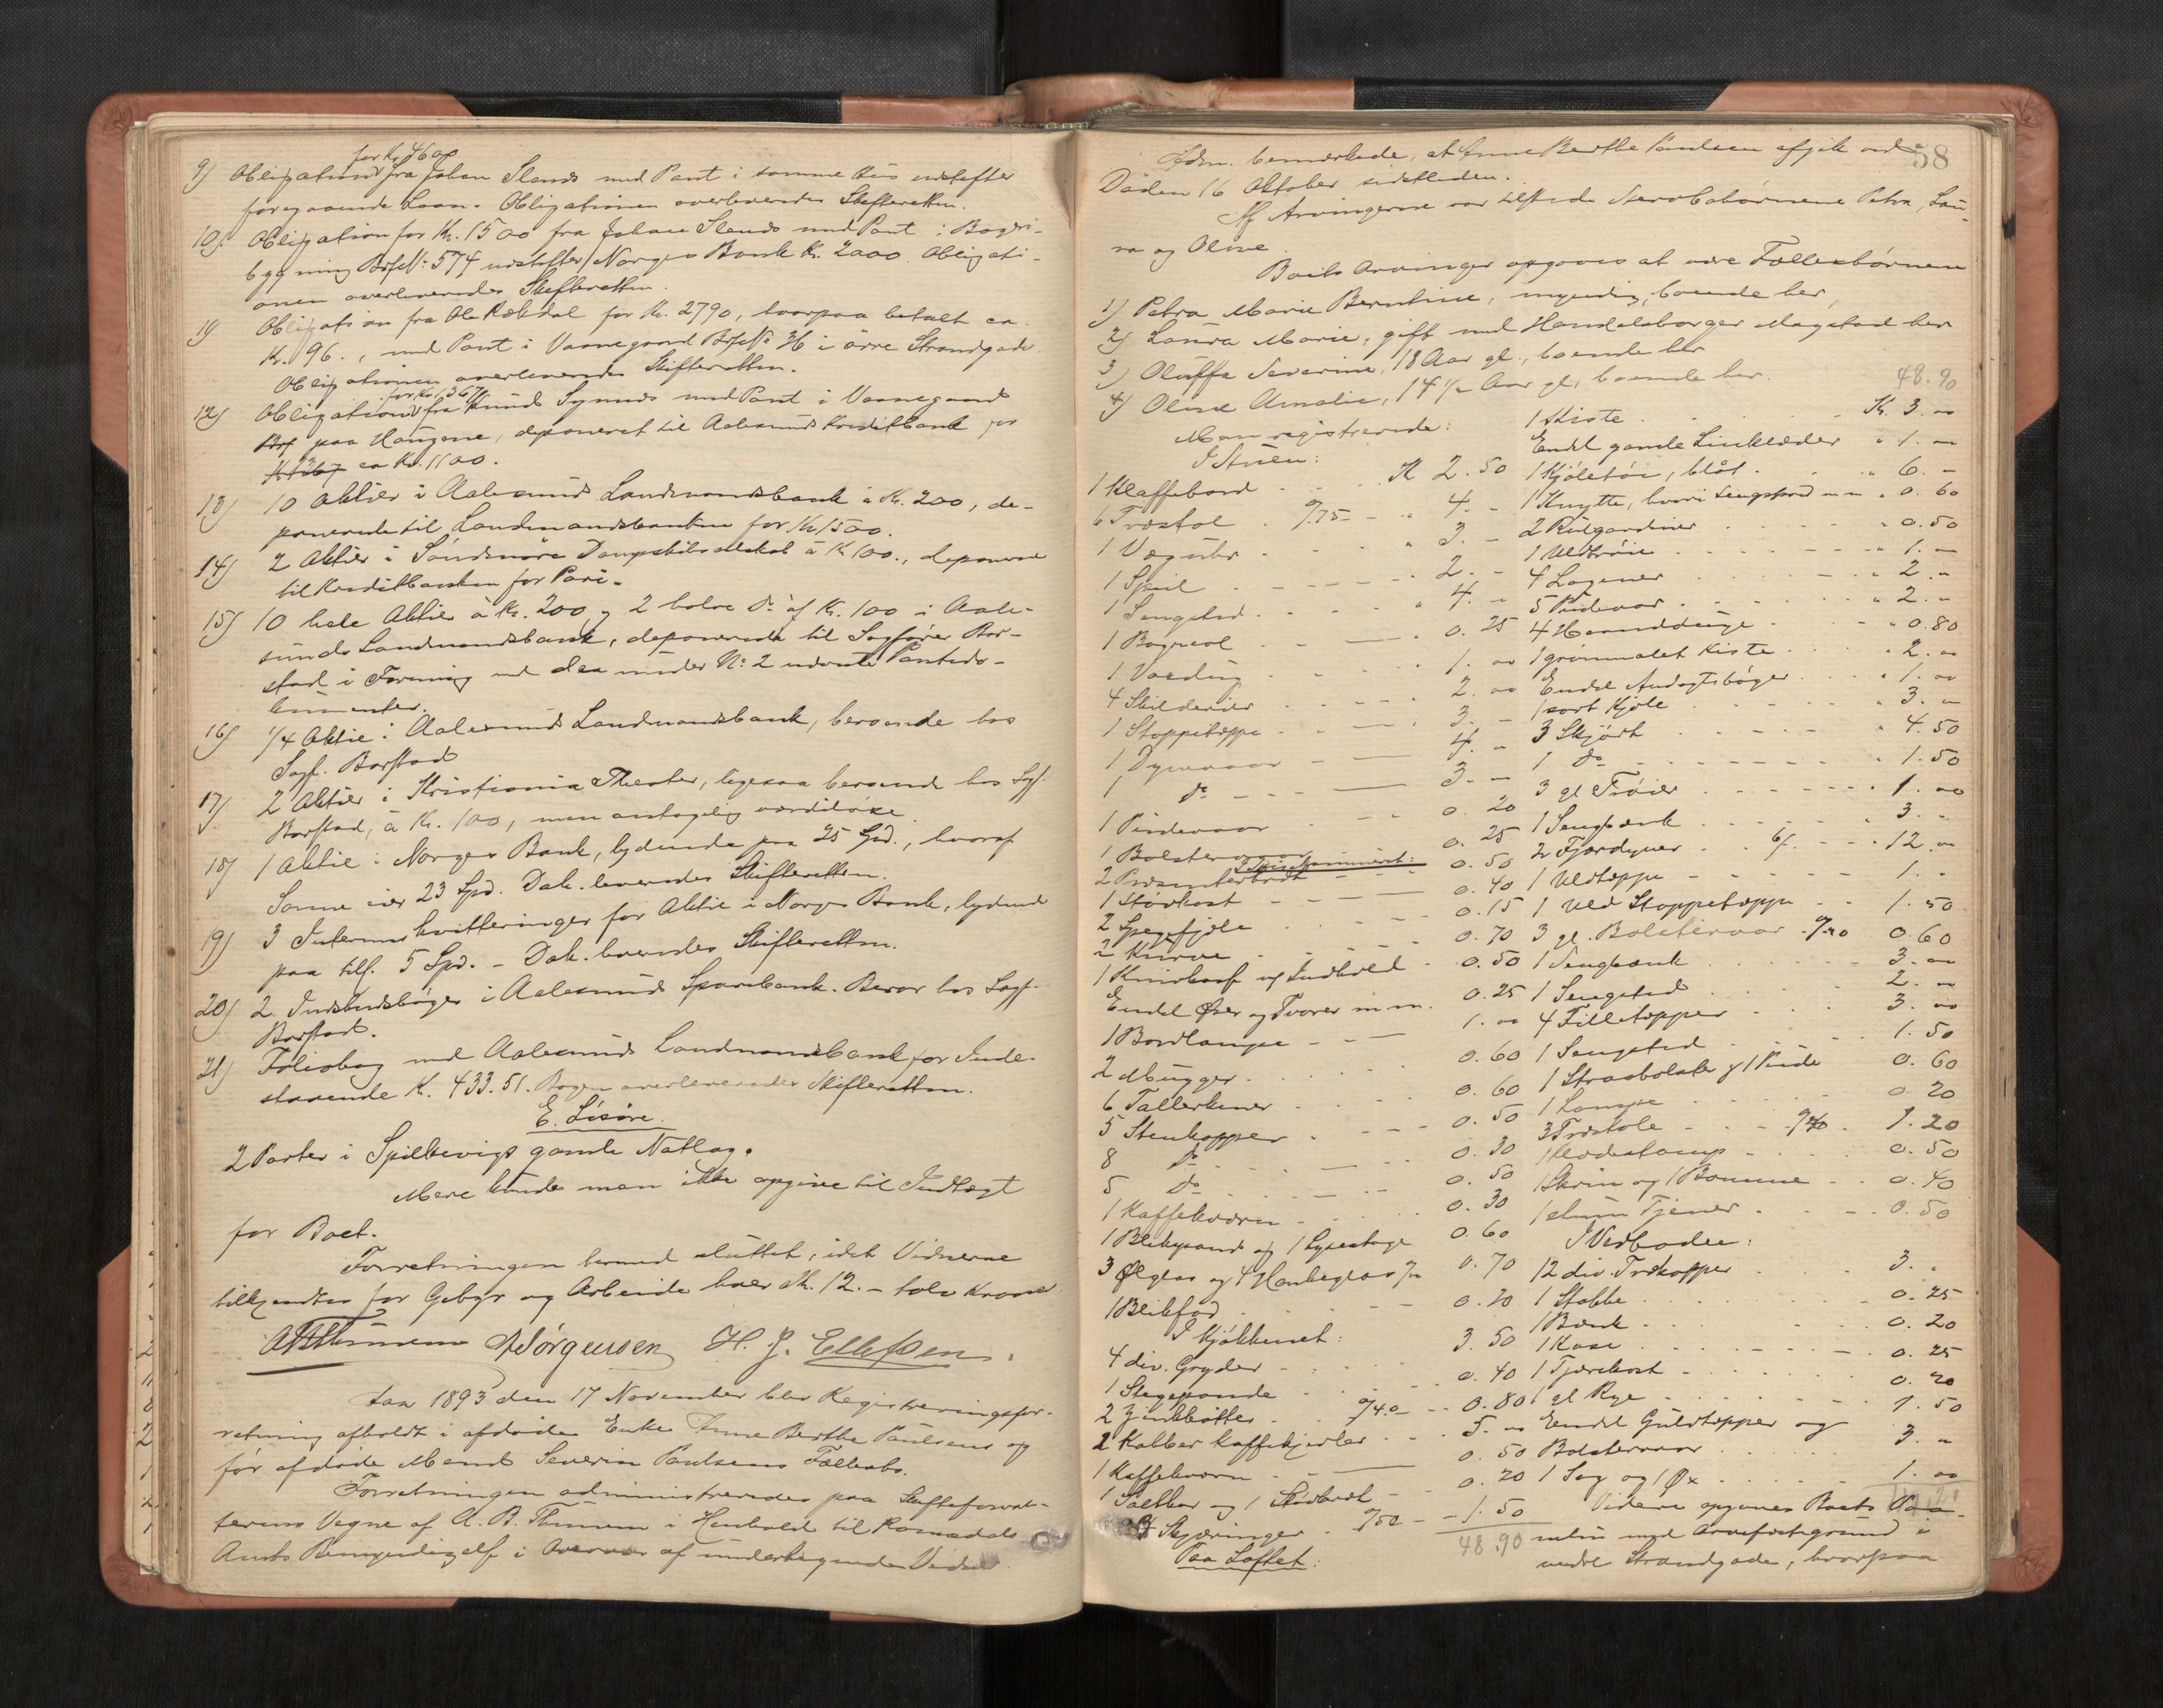 for Kr. 460,-
9) Obligation fra Johan Slends med Pant i samme Hus næstefter
foregaaende Laan. Obligationen overleveredes Skifteretten.
10) Obligation for Kr. 1500 fra Johan Slends med Pant i Bageri-
bygning BrfNo 574 næstefter Norges Bank Kr. 2000. Obligati-
onen overleveredes Skifteretten.
11) Obligation fra Ole Rekdal for Kr. 2790, hvorpaa betalt ca
Kr. 96., med Pant i Vaanegaard BrfNo 36 i øvre Strandgade.
Obligationen overleveredes Skifteretten.
for Kr. 1367
12) Obligation fra Knud Synnes med Pant i Vaanegaard
paa Haugene, deponeret til Aalesunds Kreditbank for
Kr 1367 ca Kr. 1100.
13) 10 Aktier i Aalesunds Landmandsbank à Kr. 200, de-
ponerede til Landmandsbanken for Kr 1500.
14) 2 Aktier i Søndmøre Dampskibsselskab à Kr 100., deponerede
til Kreditbanken for Pari.
15) 10 hele Aktier à Kr. 200 og 2 halve Do af Kr. 100 i Aale-
sunds Landmandsbank, deponerede til Sagfører Bar-
stad i Forening med den under No 2 nævnte Pantedo-
kumenter.
16) 1/4 Aktie i Aalesunds Landmandsbank, beroende hos
Sagf. Barstad
17) 2 Aktier i Kristiania Theater, ligesaa beroende hos Sagf.
Barstad, à Kr. 100, men antagelig værdiløse
18) 1 Aktie i Norges Bank, lydende paa 25 Spd., hvoraf
Sønne eier 23 Spd. Dok. leveredes Skifteretten.
19) 3 Interimskvitteringer for Aktie i Norges Bank, lydende
paa tils. 5 Spd. - Dok. leveredes Skifteretten.
20) 2 Indskudsbøger i Aalesunds Sparebank. Beror hos Sagf.
Barstad.
21) Foliobog med Aalesunds Landmandsbank for Inde-
staaende Kr. 433.51. Bogen overleveredes Skifteretten.
E. Løsøre.
2 Parter i Spilkevigs gamle Notlag.
Mere kunde man ikke opgive til Indtægt
for Boet.
Forretningen hermed sluttet, idet Vidnerne
tilkjendtes for Gebyr og Arbeide hver Kr. 12.- tolv Kroner
AB Thunem A Jørgensen H. J. Ellefsen.
Aar 1893 den 17 November blev Registreringsfor-
retning afholdt i afdøde Enke Anne Berthe Paulsens og
før afdøde Mand Severin Paulsens Fællesbo.
Forretningen administreredes paa Skifteforval-
terens Vegne af A. B. Thunem i Henhold til Romsdals
Amts Bemyndigelse i Overvær af undertegnede Vidner.
58
Adm. bemærkede, at Anne Berthe Paulsen afgik ved
Døden 16 Oktober sidstleden.
Af Arvingerne var tilstede Stervbobørnene Petra, Lau-
ra og Oline.
Boets Arvinger opgaves at være Fællesbørnene
1) Petra Marie Berntine, myndig, boende her,
2) Laura Marie, gift med Handelsborger Magstad her
3) Oluffa Severine, 18 Aar gl., boende her
4) Oline Amalie, 14 1/2 Aar gl., boende her.
Man registrerede:
I Stuen:
1 Klaffebord Kr 2.50
6 Træstol 9/75 " 4. -
1 Vægühr " 3. -
1 Speil " 2. -
1 Sengested " 4. -
1 Bogreol " 0.25
1 Vaxdug " 1. 00
4 Skilderier " 2. 00
1 Stoppetæppe " 3. -
1 Dynevaar 4. "
1 Do 3. -
1 Pudevaar 0. 20
1 Bolstervaar 0. 25
I Spisekammeret:
2 Præsenterbret 0. 50
1 Støvkost 0. 40
2 Spegefjøle 0. 15
2 Kurve 0. 70
1 Knivkurf og Indhold 0. 50
Endel Øser og Tvarer m.m. 0. 25
1 Bordlampe 1. 00
2 Mugger 0. 60
6 Tallerkener 0. 60
5 Stenkopper 0. 50
8 Do 0. 30
5 Do 0. 50
1 Kaffekværn 0. 30
1 Blikspand og 1 Lysestage 0. 60
3 Ølglas og 4 Hankeglas 0. 70
1 Blikfad 0. 20
I Kjøkkenet:
4 div. Gryder 3. 50
1 Stegepande 0. 40
2 Zinkbøtter 9/40 0. 80
2 Kobber kaffekjedler 5. 00
1 Kaffekværn 0. 50
1 Saltkar og 1 Skjærbret 0. 20
3 Stegeringer 9/50 1. 50
48.90
Paa Loftet:
48.90
1 Kiste Kr. 3. 00
Endel gamle Linklæder " 1. 00
1 Kjøletøi, blåt " 6. -
1 Knytte, hvori Sengeklæd m m " 0. 60
2 Rulgardiner " 0.50
1 Uldtrøie " 1. -
4 Lagener " 2. "
5 Pudevaar " 2. "
4 Haandduge " 0.80
1 grønmalet Kiste 2. 00
Endel Andagtsbøger " 1. 00
1 sort Kjole 3. "
3 Skjørt " 4. 50
1 Do " 1. 50
3 gl Trøier 1. 00
1 Sengbænk 3. "
2 Fjærdyner 6/ 12. 00
1 Uldtæppe 1. "
1 Uld Stoppetæppe 1. 50
3 gl. Bolstervaar 9/20 0.60
1 Sengbænk 3. 00
1 Sengested 2. 00
4 Filletæpper 3. 00
1 Sengested 1. 50
1 Straabolster og 1 Pude 0. 60
1 Lampe 0. 20
3 Træstole 9/40 1. 20
1 Klædestamp 0. 50
1 Skrin og 1 Bomme 0. 40
1 stum Tjener 0. 50
I Vedboden:
12 div. Trækopper 3. "
1 Stabbe 0. 25
1 Bænk 0. 20
1 Kasse 0. 25
1 Tjærekost 0. 20
1 gl Rye 1. 50
Endel Gulvtæpper og
Bolstervaar 3. "
1 Sag og 1 Øx 1. 00
Videre opgaves Boets Paa-
med Arvefæstegrund i
nedre Strandgade, hvorpaa